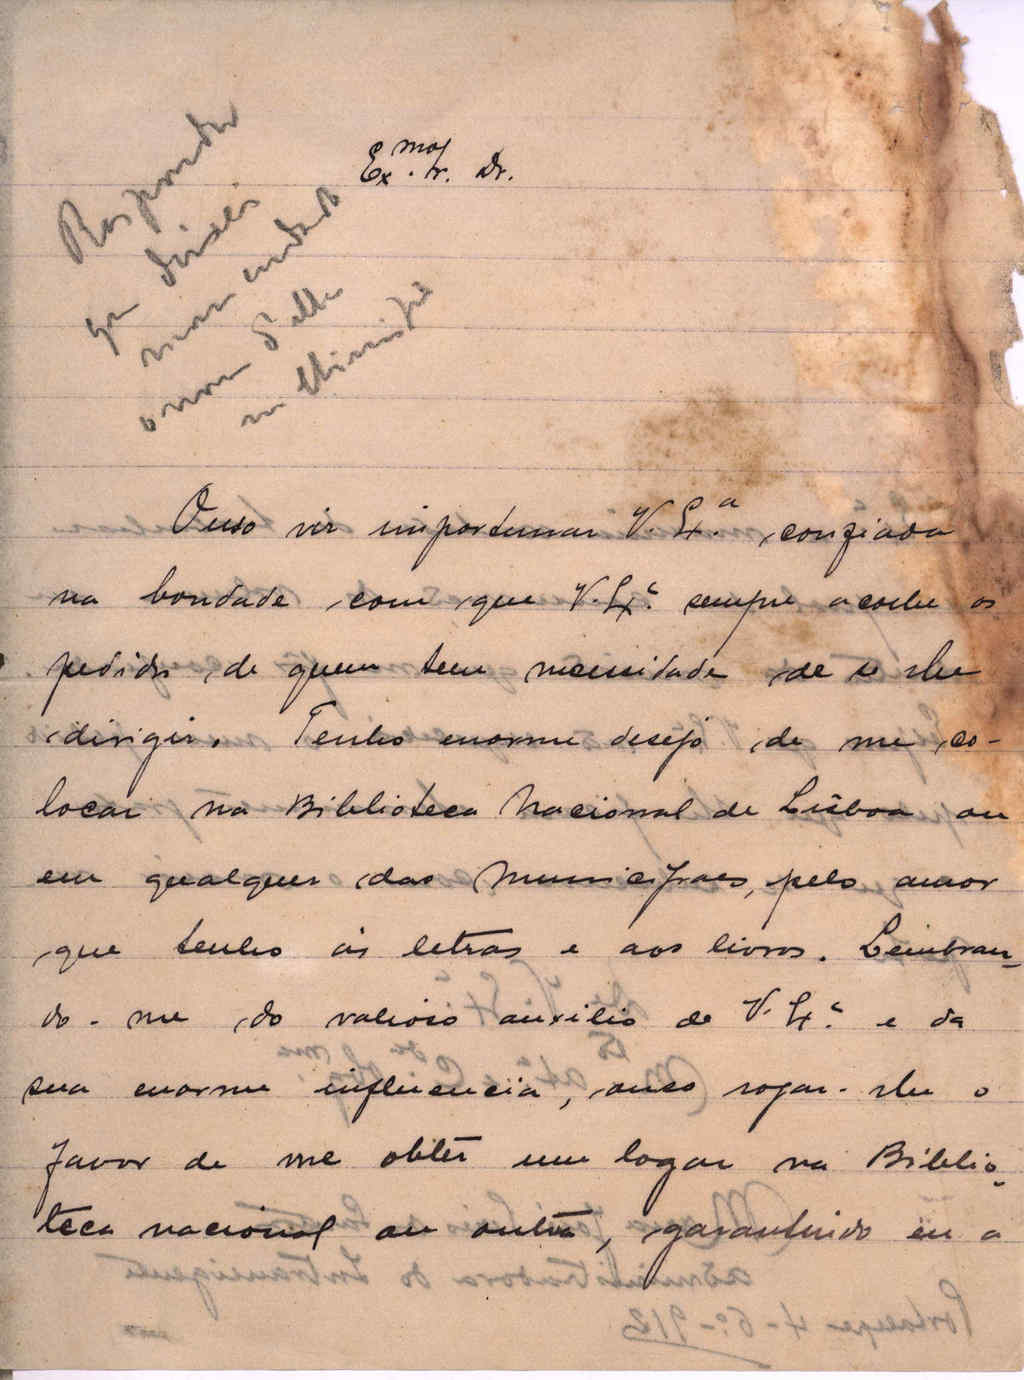 Ex.mo Sr. Dr.
Responder
que
mas
na
Ouso vir importunar V. Ex.a confiada
na bondade com que V. Ex.a sempre acolhe os
pedidos de quem tem necessidade de se lhe
dirigir. Tenho enorme desejo de me co-
locar na Biblioteca Nacional de Lisboa ou
em qualquer das Municipaes, pelo amor
que tenho ás letras e aos livros. Lembran-
do-me do valioso auxilio de V. Ex.a e da
sua enorme influencia, ouso rogar-lhe o
favor de me obter um logar na Biblio-
teca nacional ou outra, garantindo eu a